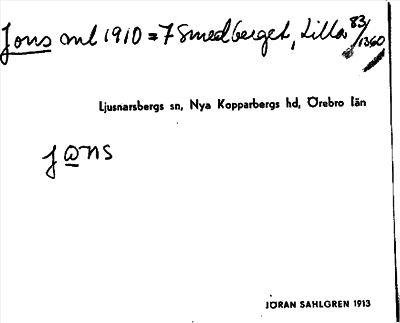 Jons ml 1910 = 7 Smedberget, Lilla 83/1360
Ljusnarsbergs sn, Nya Kopparbergs hd, Örebro län
jɷns
JÖRAN SAHLGREN 1913